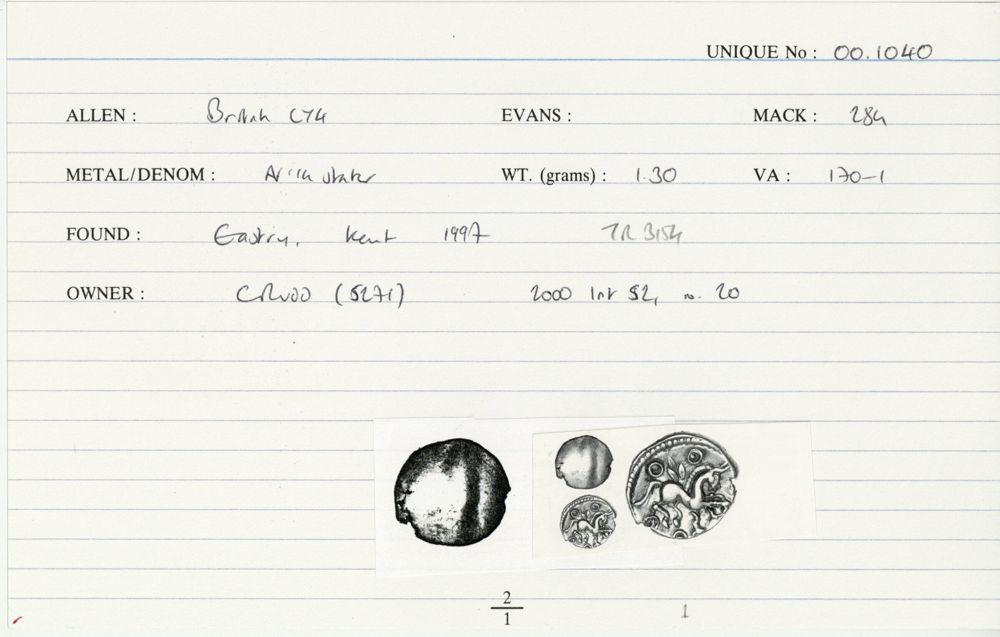 UNIQUE No : 00.1040
ALLEN : British LY4 EVANS : MACK : 284
METAL/DENOM : AV 1/4 stater WT. (grams) : 1.30 VA : 170-1
FOUND : Eastry, Kent 1997 TR 3154
OWNER : CRWDD (5271) 2000 list 52, no. 20
2
1
1